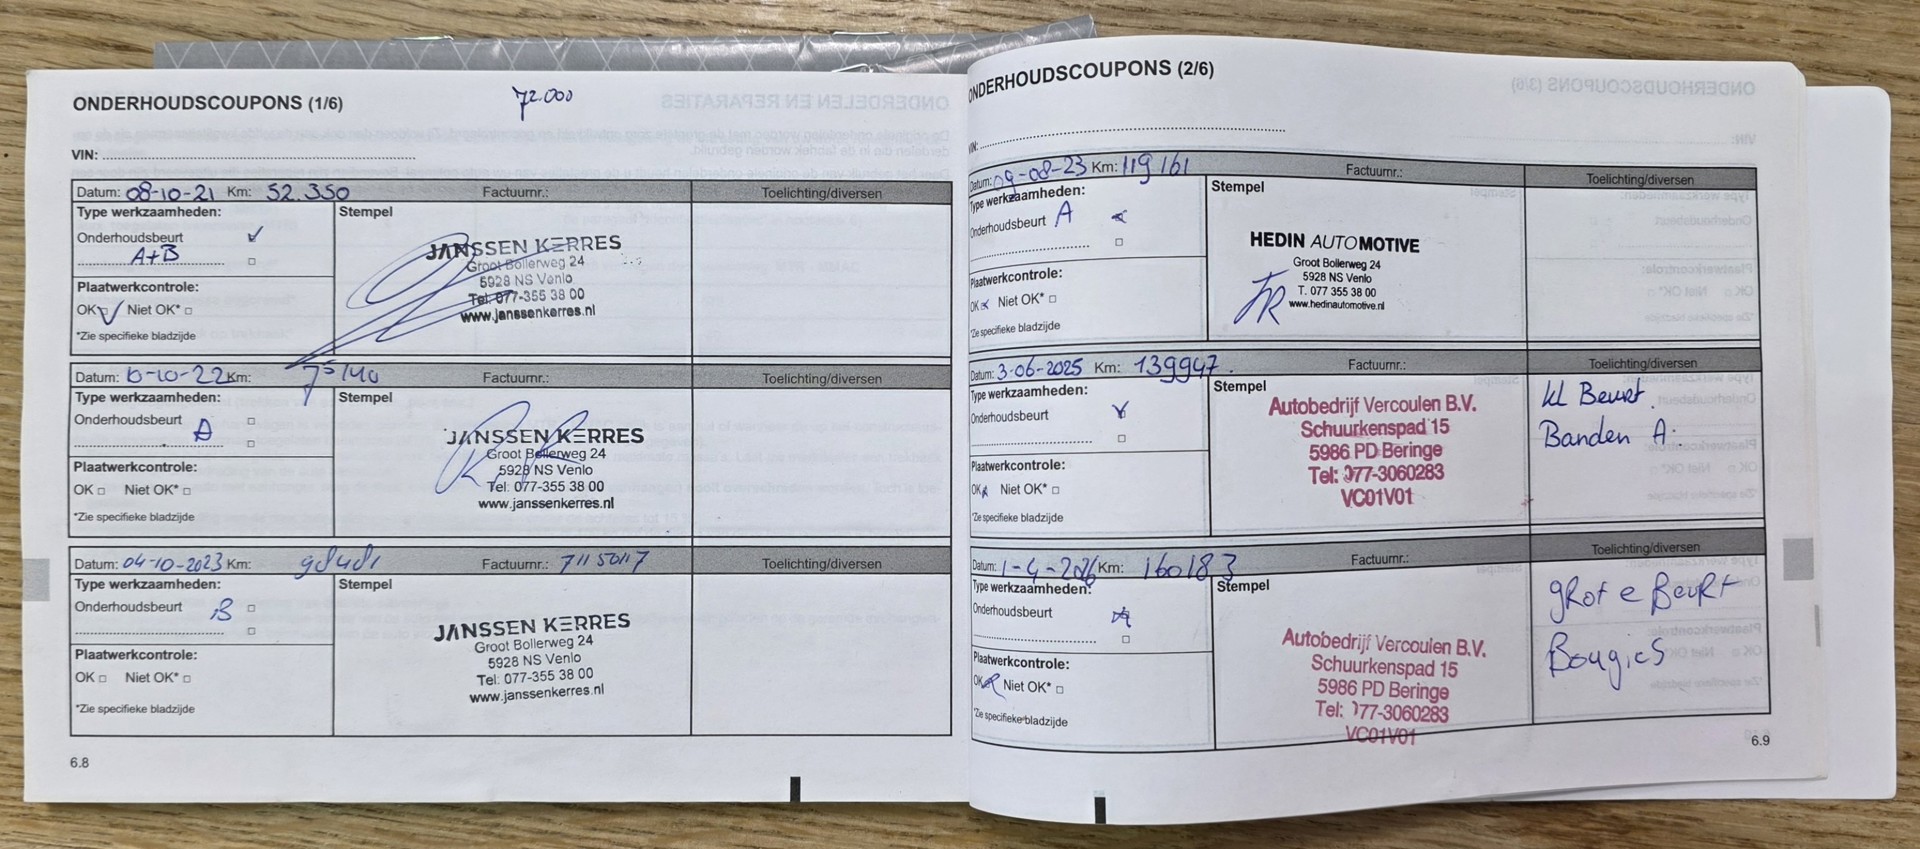 ONDERHOUDSCOUPONS (1/6)
72.000
VIN:
Datum: 08-10-21 Km: 52.350 Factuurnr.: Toelichting/diversen
Type werkzaamheden:
Stempel
Onderhoudsbeurt
A+B
Plaatwerkcontrole:
OK Niet OK*
*Zie specifieke bladzijde
JANSSEN KERRES
Groot Bollerweg 24
5928 NS Venlo
Tel: 077-355 38 00
www.janssenkerres.nl
Datum: 10-10-22 Km: 75140 Factuurnr.: Toelichting/diversen
Type werkzaamheden:
Stempel
Onderhoudsbeurt
A
Plaatwerkcontrole:
OK Niet OK*
*Zie specifieke bladzijde
JANSSEN KERRES
Groot Bollerweg 24
5928 NS Venlo
Tel: 077-355 38 00
www.janssenkerres.nl
Datum: 04-10-2023 Km: 98481 Factuurnr.: 7115017 Toelichting/diversen
Type werkzaamheden:
Stempel
Onderhoudsbeurt B
Plaatwerkcontrole:
OK Niet OK*
*Zie specifieke bladzijde
JANSSEN KERRES
Groot Bollerweg 24
5928 NS Venlo
Tel: 077-355 38 00
www.janssenkerres.nl
6.8
ONDERHOUDSCOUPONS (2/6)
VIN:
Datum: 09-08-23 Km: 119161 Factuurnr.: Toelichting/diversen
Type werkzaamheden:
Stempel
Onderhoudsbeurt A
Plaatwerkcontrole:
OK Niet OK*
*Zie specifieke bladzijde
HEDIN AUTOMOTIVE
Groot Bollerweg 24
5928 NS Venlo
T. 077 355 38 00
www.hedinautomotive.nl
Datum: 3-06-2025 Km: 139947. Factuurnr.: Toelichting/diversen
Type werkzaamheden:
Stempel
Onderhoudsbeurt
Plaatwerkcontrole:
OK Niet OK*
*Zie specifieke bladzijde
Autobedrijf Vercoulen B.V.
Schuurkenspad 15
5986 PD Beringe
Tel: 077-3060283
VC01V01
kl Beurt.
Banden A.
Datum: 1-4-2026 Km: 160183 Factuurnr.: Toelichting/diversen
Type werkzaamheden:
Stempel
Onderhoudsbeurt
Plaatwerkcontrole:
OK Niet OK*
*Zie specifieke bladzijde
Autobedrijf Vercoulen B.V.
Schuurkenspad 15
5986 PD Beringe
Tel: 077-3060283
VC01V01
grote Beurt
Bougies
6.9